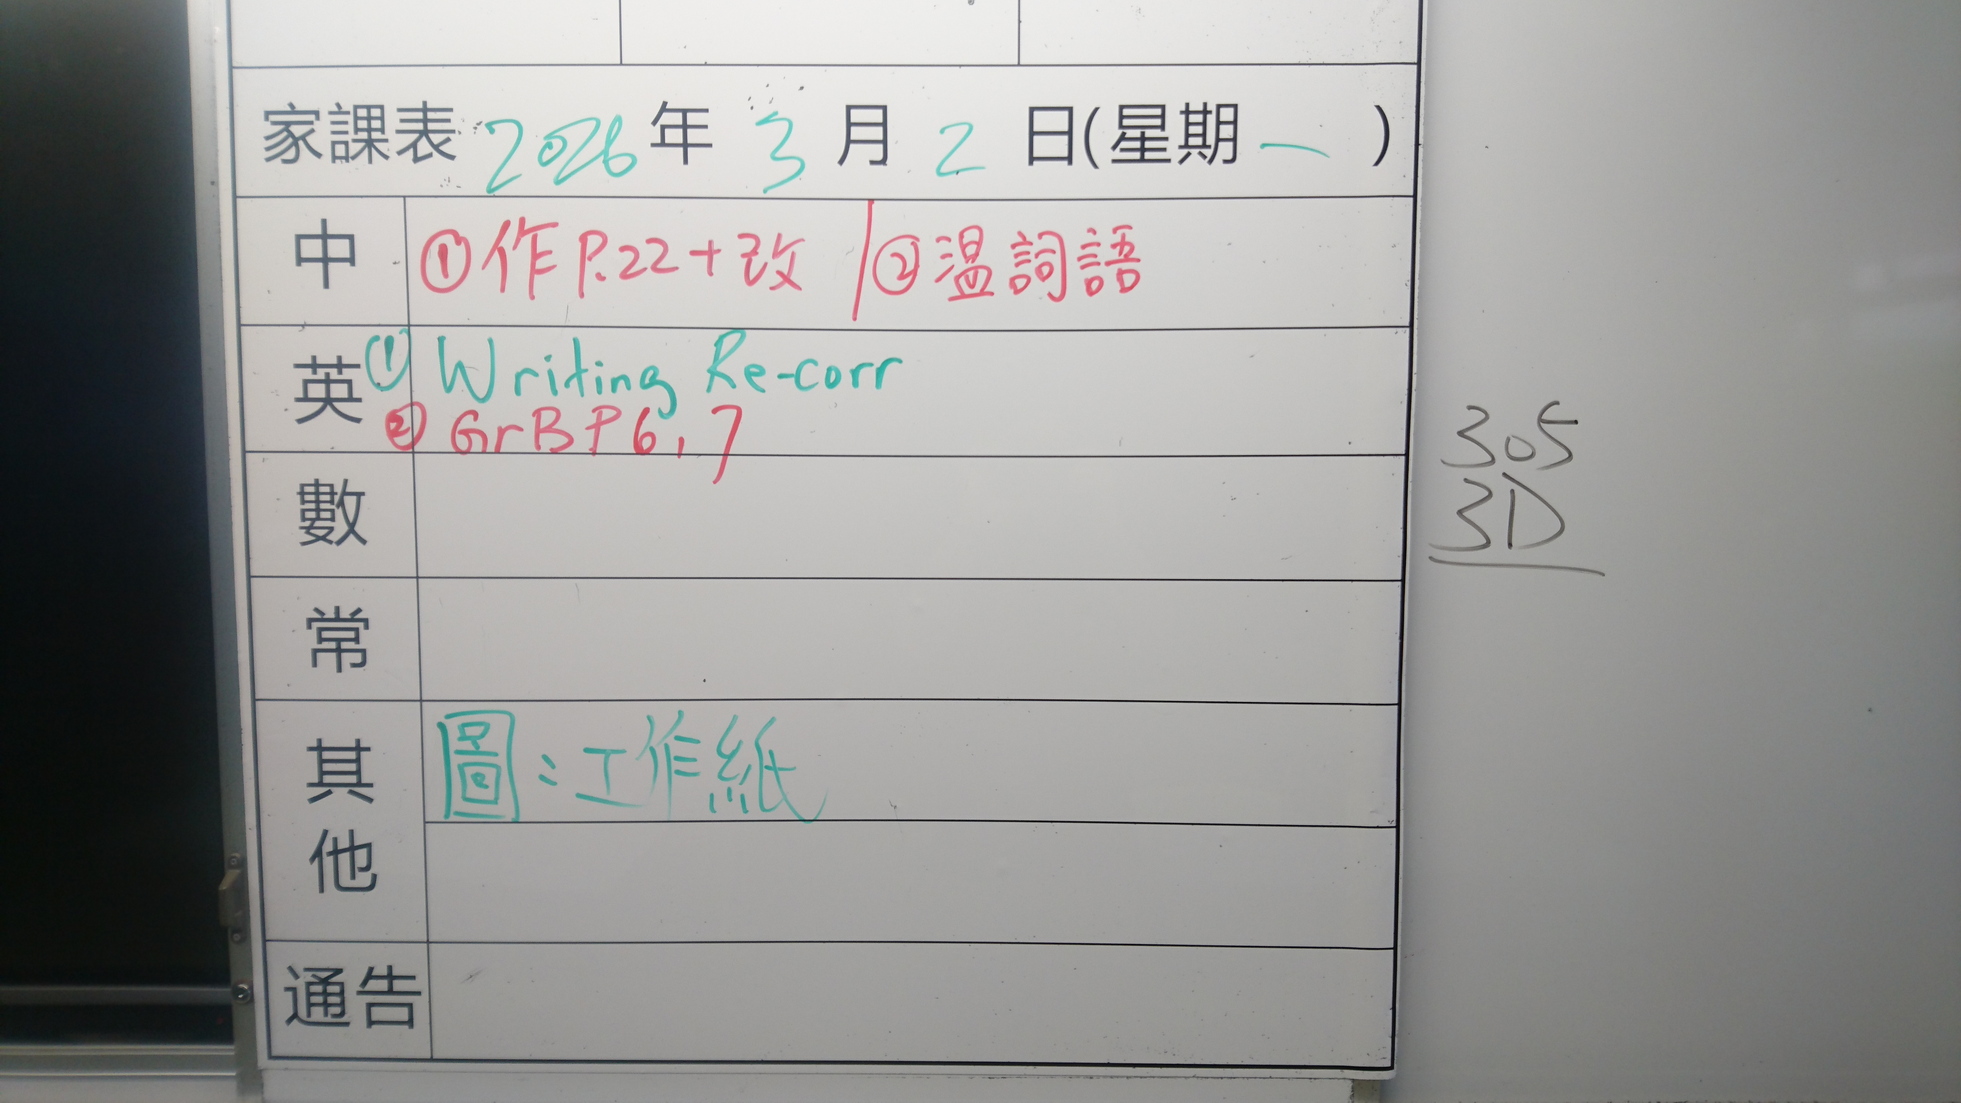 家課表 2026 年 3 月 2 日(星期 一 )
中 ①作 P.22+改 / ②温詞語
英 ① Writing Re-corr
② GrB P 6, 7
305
3D
數
常
其他 圖:工作紙
通告